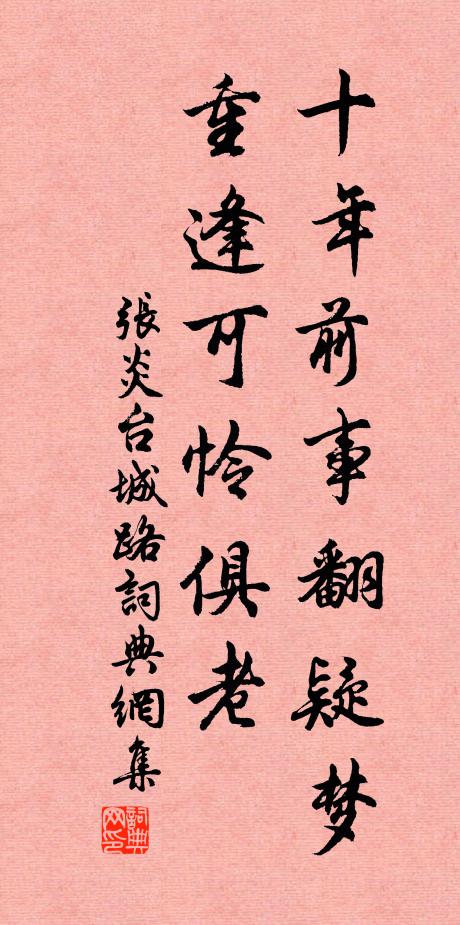 十年前事翻疑梦
重逢可怜俱老
張炎台城路詞典網集
詞典网印